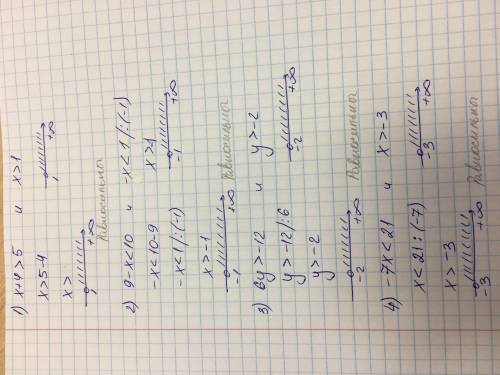 1) x+4>5 и x>1
x>5-4
x>
1 +∞
+∞
Равносильны
2) 9-x<10 и -x<1 /:(-1)
-x<10-9
x>-1
-x<1 /:(-1)
-1 +∞
x>-1
-1 +∞
Равносильны
3) 6y>-12 и y>-2
y>-12/:6
y>-2
-2 +∞
-2 +∞
Равносильны
4) -7x<21 и x>-3
x<21:(-7)
x>-3
-3 +∞
-3 +∞
Равносильны